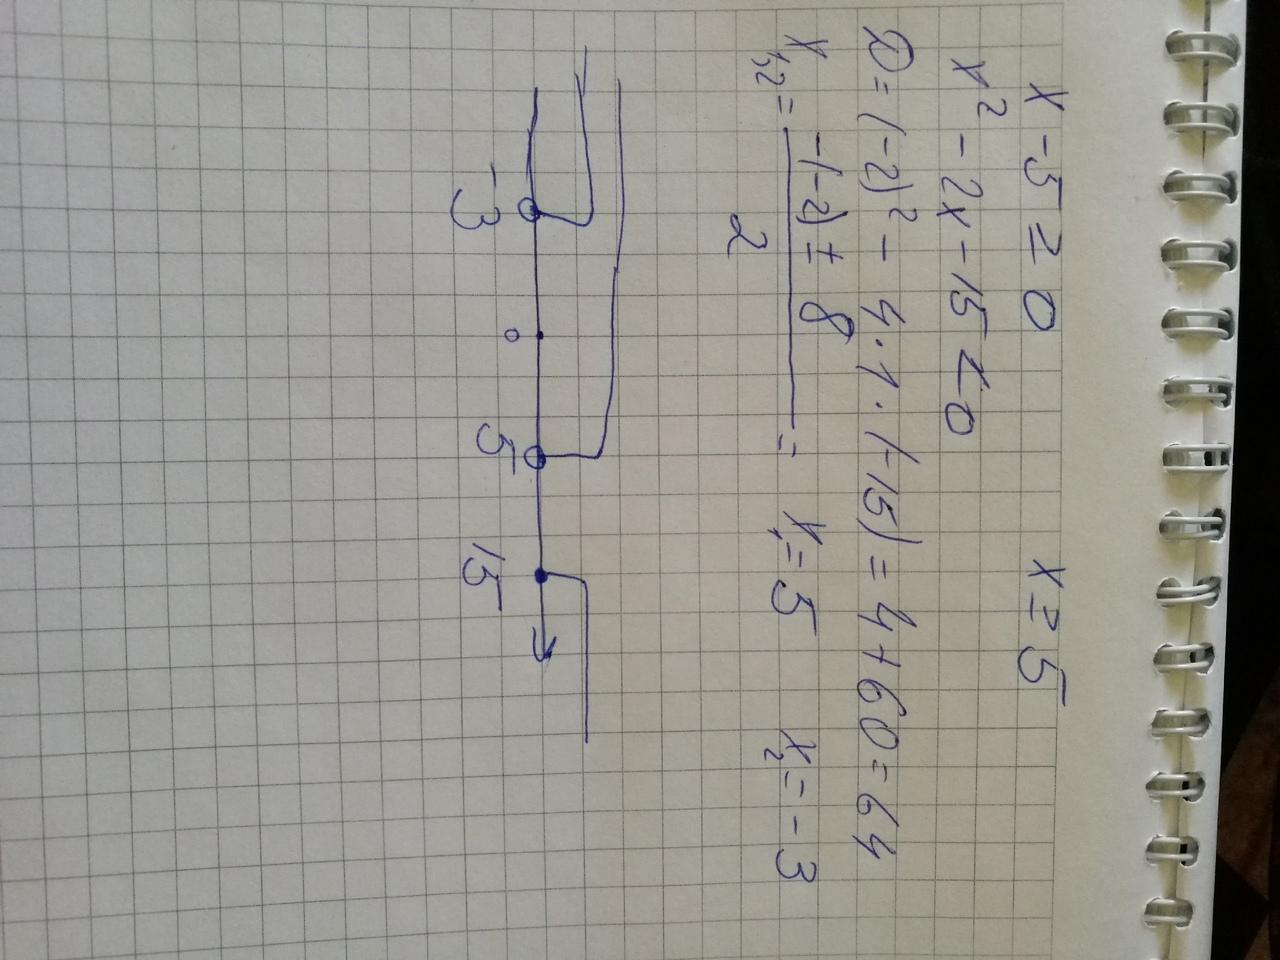 x - 5 ≥ 0 x ≥ 5
x² - 2x - 15 < 0
D = (-2)² - 4·1·(-15) = 4 + 60 = 64
x₁,₂ = (-(-2) ± 8) / 2 = x₁ = 5 x₂ = -3
-3 0 5 15